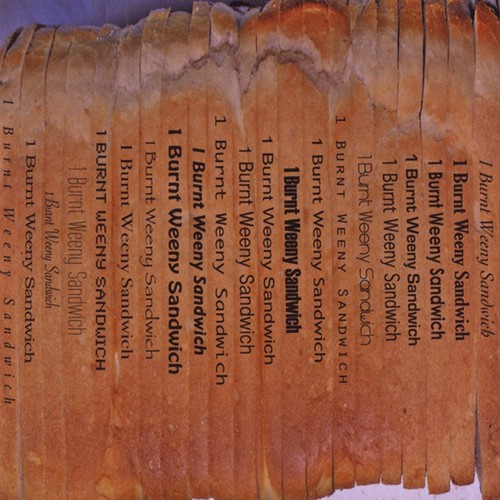 1 Burnt Weeny Sandwich
1 Burnt Weeny Sandwich
1 Burnt Weeny Sandwich
1 Burnt Weeny Sandwich
1 Burnt Weeny Sandwich
1 Burnt Weeny Sandwich
1 BURNT WEENY SANDWICH
1 Burnt Weeny Sandwich
1 Burnt Weeny Sandwich
1 Burnt Weeny Sandwich
1 Burnt Weeny Sandwich
1 Burnt Weeny Sandwich
1 Burnt Weeny Sandwich
1 Burnt Weeny Sandwich
1 Burnt Weeny Sandwich
1 Burnt Weeny Sandwich
1 BURNT WEENY SANDWICH
1 Burnt Weeny Sandwich
1 Burnt Weeny Sandwich
1 Burnt Weeny Sandwich
1 Burnt Weeny Sandwich